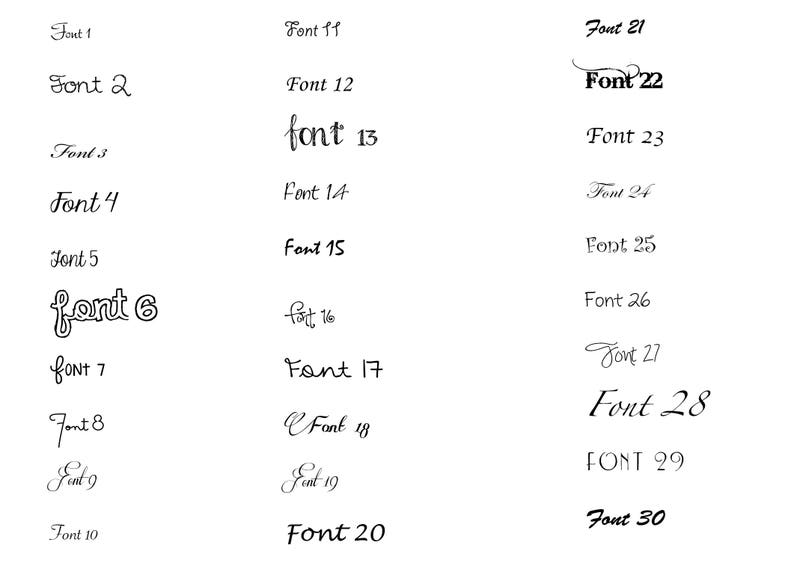 Font 1
Font 2
Font 3
Font 4
Font 5
font 6
fONT 7
Font 8
Font 9
Font 10
Font 11
Font 12
font 13
Font 14
Font 15
font 16
Font 17
Font 18
Font 19
Font 20
Font 21
Font 22
Font 23
Font 24
Font 25
Font 26
Font 27
Font 28
FONT 29
Font 30